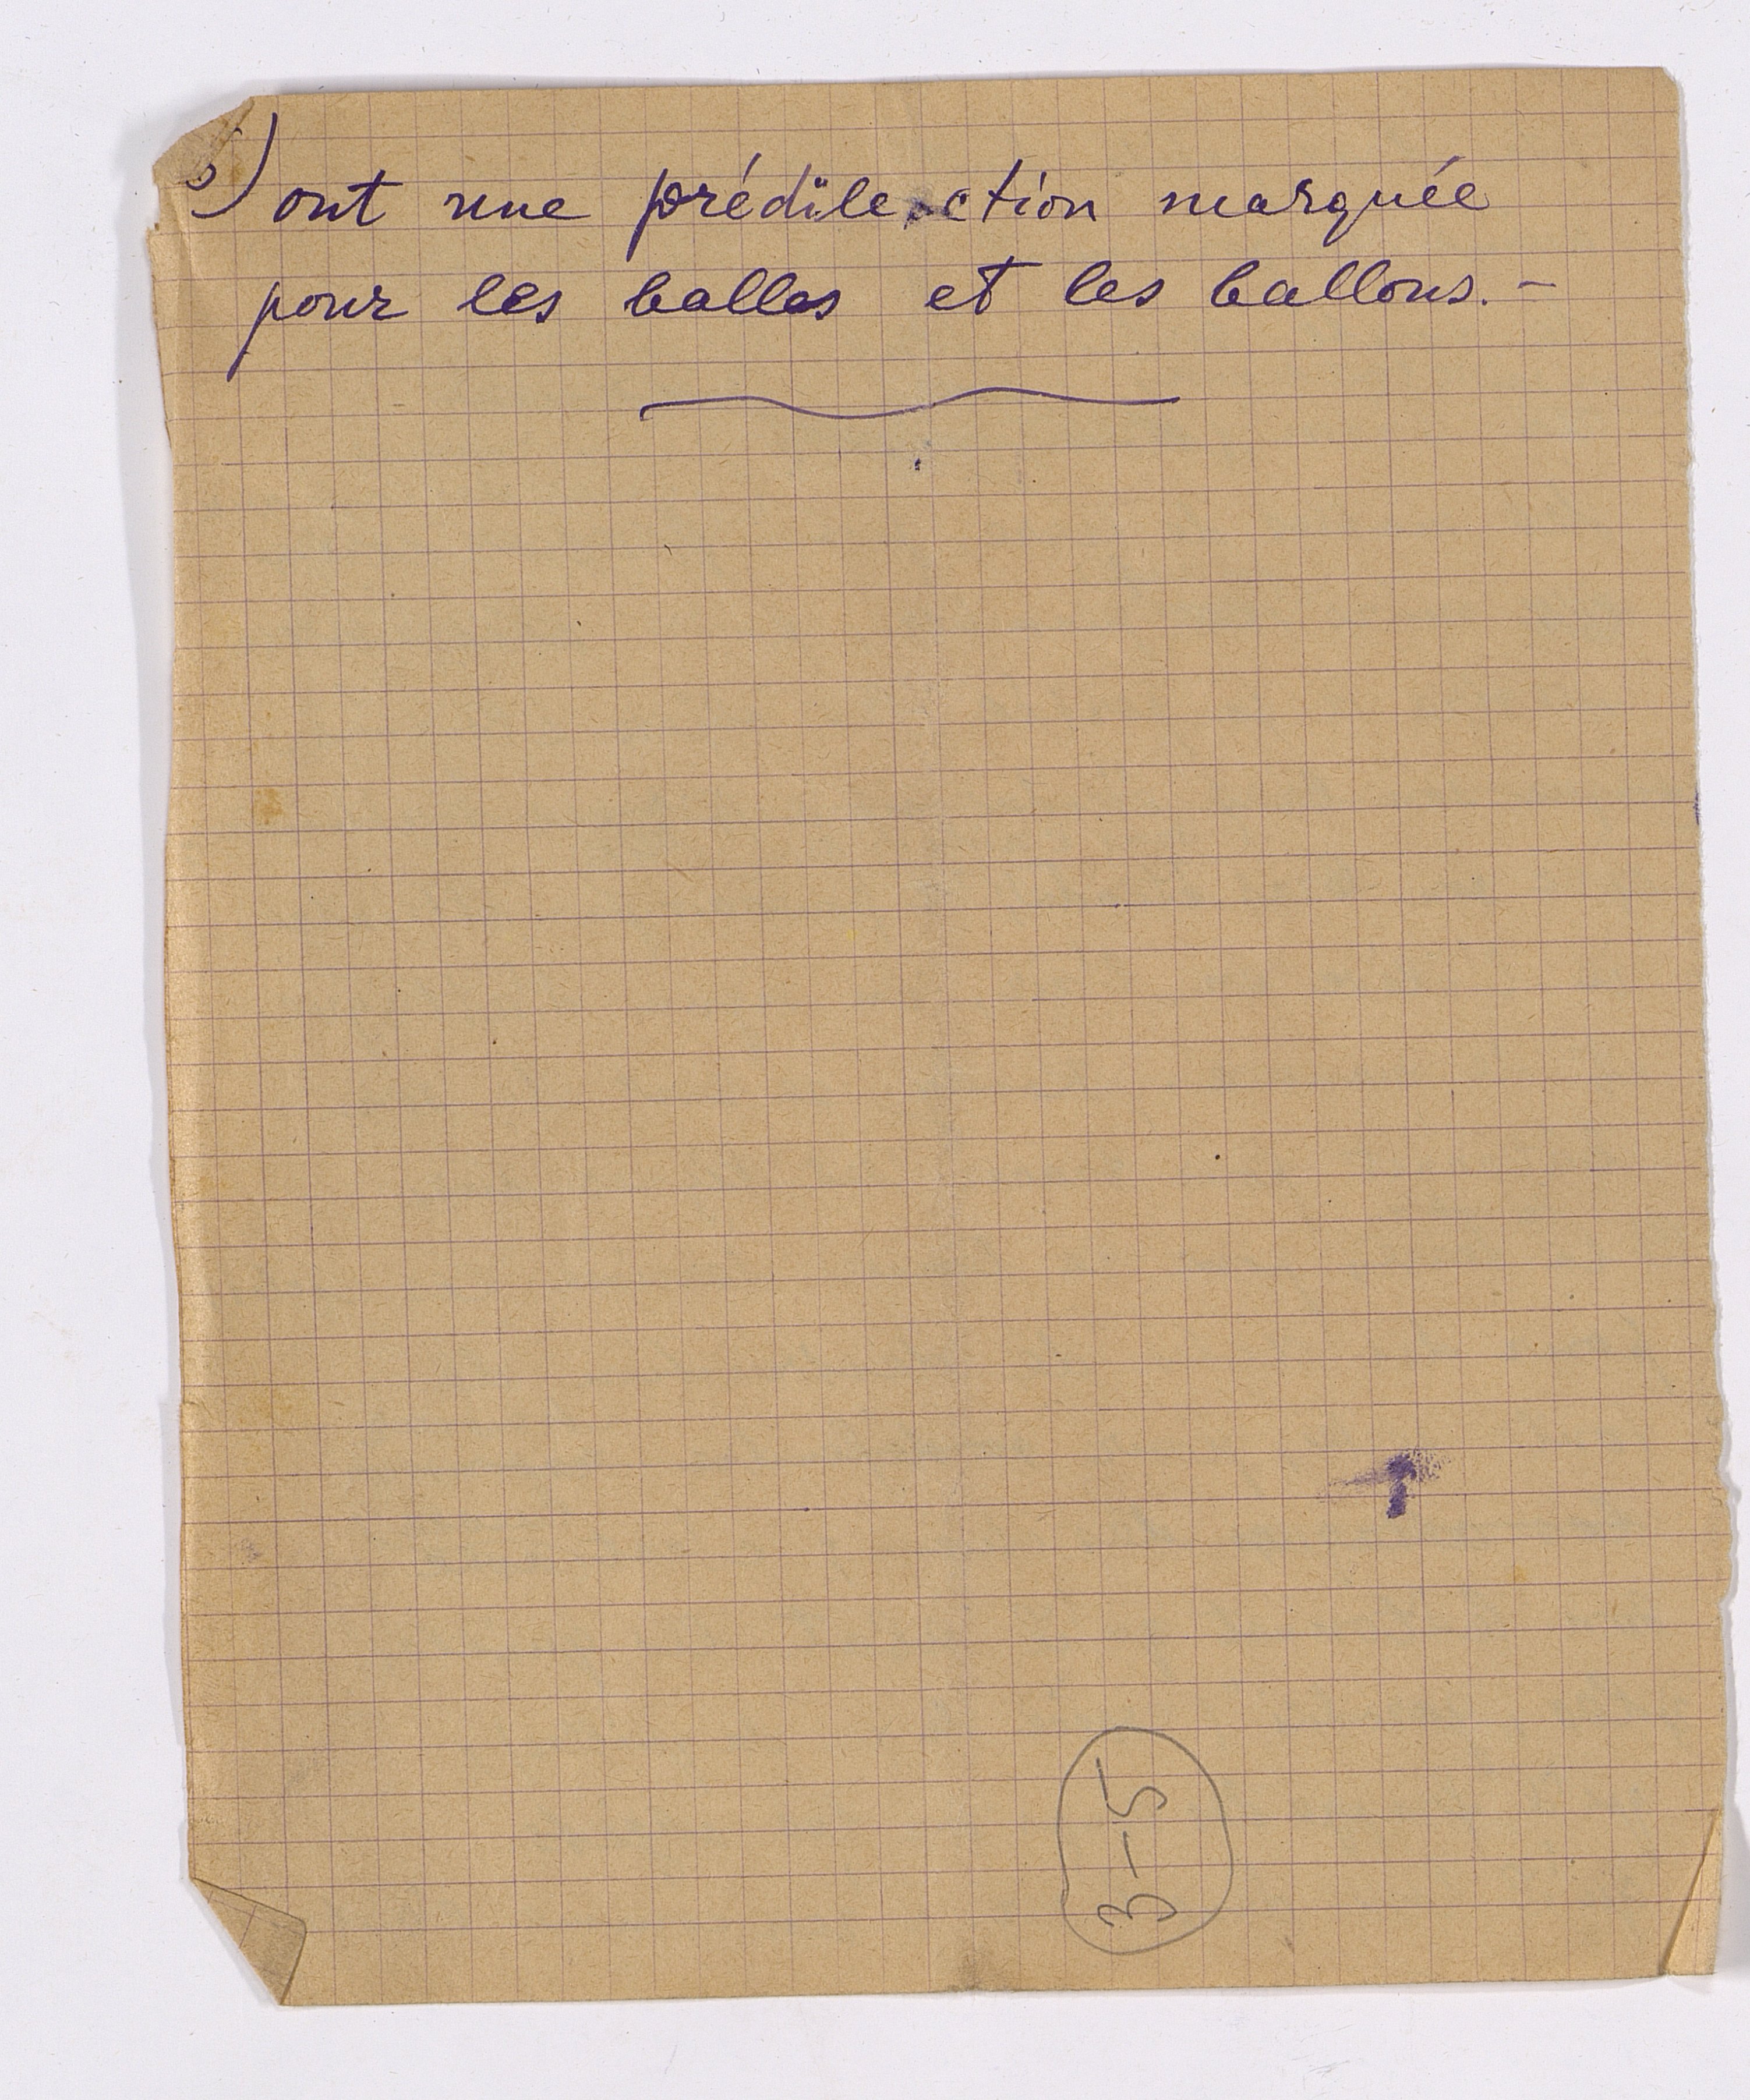 ont une prédilection marquée
pour les balles et les ballons. -
3-5